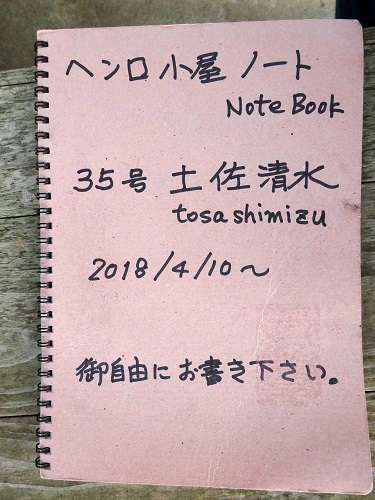 ヘンロ小屋 ノート
Note Book
35号 土佐清水
tosashimizu
2018/4/10～
御自由にお書き下さい。